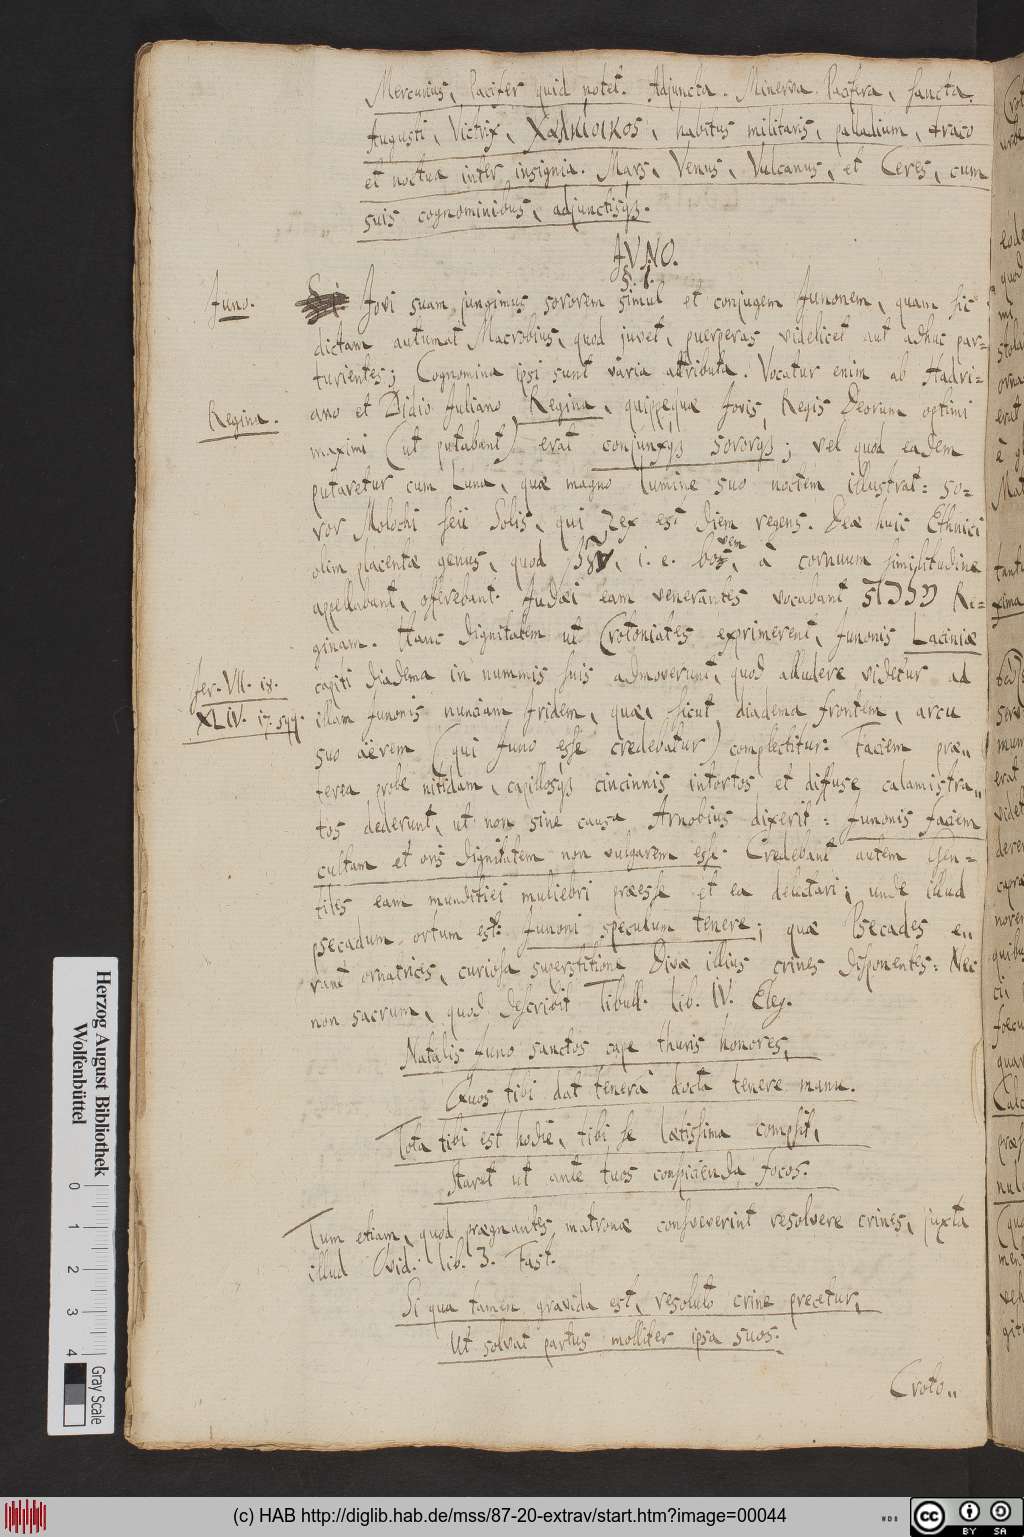 Mercurius, Pacifer quid notet. Adjuncta. Minerva Pacifera, sancta,
Augusti, Victrix, Χαλκίοικος, habitus militaris, palladium, draco
et noctua inter insignia. Mars, Venus, Vulcanus, et Ceres, cum
suis cognominibus, adjunctisqs.
JVNO.
§. 1.
Juno.
Jovi suam jungimus sororem simul et conjugem Junonem, quam sic
dictam autumat Macrobius, quod juvet, puerperas videlicet aut adhuc par=
turientes; Cognomina ipsi sunt varia attributa. Vocatur enim ab Hadri=
Regina.
ano et Didio Juliano Regina, quippe quæ Jovis, Regis Deorum optimi
maximi (ut putabant) erat conjunxqs sororqs; vel quod eadem
putaretur cum Luna, quæ magno lumine suo noctem illustrat: so=
ror Molochi seu Solis, qui rex est diem regens. Deæ huic Ethnici
olim placentæ genus, quod i. e. bovem, à cornuum similitudine
appellabant, offerebant. Judæi eam venerantes vocabant Re=
ginam. Hanc dignitatem ut Crotoniates exprimerent, Junonis Laciniæ
Jer. VII. 18.
capiti diadema in nummis suis admoverunt, quod alludere videtur ad
XLIV. 17. sqq.
illam Junonis nunciam Iridem, quæ, sicut diadema frontem, arcu
suo aërem (qui Juno esse credebatur) complectitur: Faciem præ=
terea probe nitidam, capillosqs cincinnis intortos et diffuse calamistra=
tos dederunt, ut non sine causa Arnobius dixerit: Junonis faciem
cultam et oris dignitatem non vulgarem esse. Credebant autem Gen=
tiles eam munditiei muliebri præesse et ea delectari; unde illud
psecadum ortum est: Junoni speculum tenere; quæ Psecades e=
rant ornatrices, curiosa superstitione Divæ illius crines disponentes: Nec
non sacrum, quod describit Tibull. lib. IV. Eleg.
Natalis Juno sanctos cape thuris honores,
Quos tibi dat tenera docta tenere manu.
Tota tibi est hodie, tibi se lætissima compsit,
Staret ut ante tuos conspicienda focos.
Tum etiam, quod prægnantes matronæ consueverint resolvere crines, juxta
illud Ovid. lib. 3. Fast.
Si qua tamen gravida est, resoluto crine precetur,
Ut solvat partus molliter ipsa suos.
Croto=
Herzog August Bibliothek
Wolfenbüttel
0 1 2 3 4
Gray Scale
(c) HAB http://diglib.hab.de/mss/87-20-extrav/start.htm?image=00044
cc BY SA